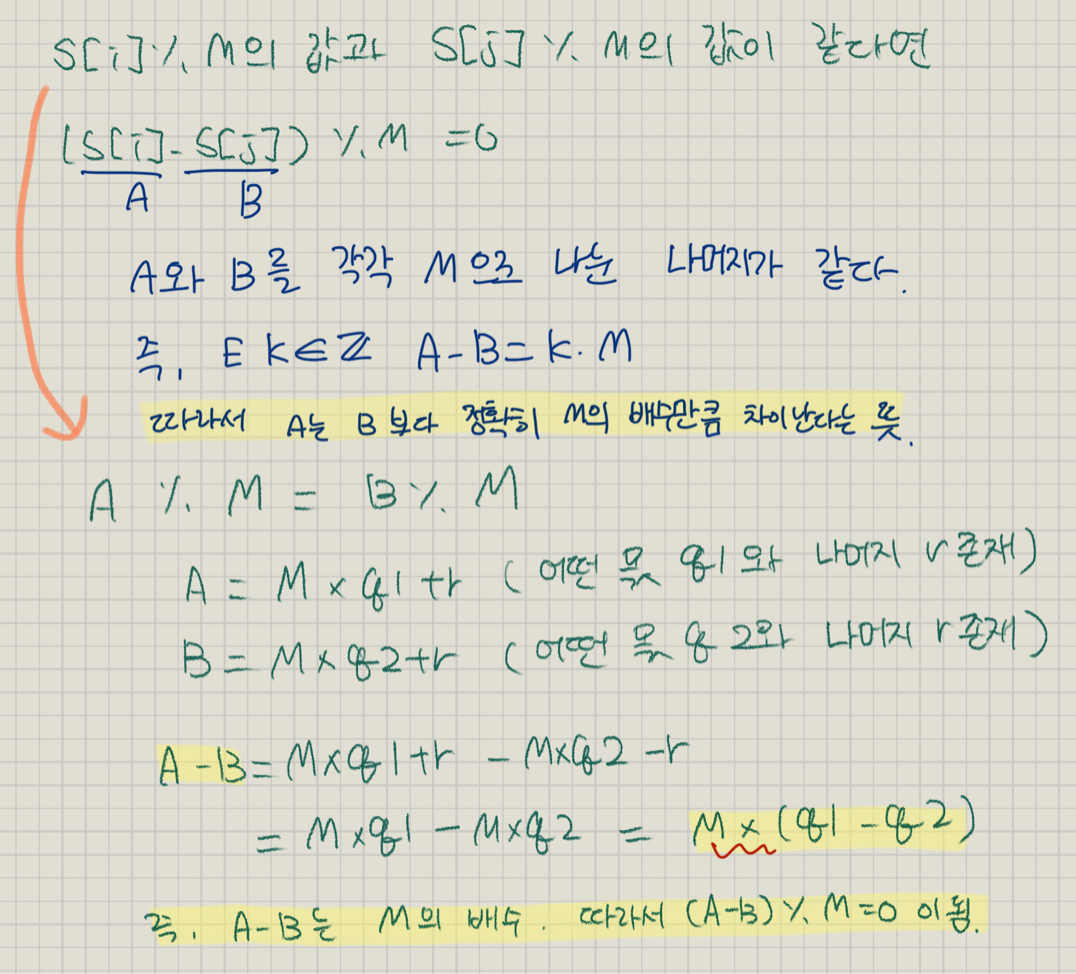 S[i] % M의 값과 S[j] % M의 값이 같다면
(S[i] - S[j]) % M = 0
A B
A와 B를 각각 M으로 나눈 나머지가 같다.
즉, E k∈ℤ A-B=k·M
따라서 A는 B보다 정확히 M의 배수만큼 차이난다는 뜻.
A % M = B % M
A = M × q1+r (어떤 몫 q1와 나머지 r 존재)
B = M × q2+r (어떤 몫 q2와 나머지 r 존재)
A-B = M×q1+r - M×q2 -r
= M×q1 - M×q2 = M×(q1 - q2)
즉, A-B는 M의 배수. 따라서 (A-B) % M=0 이됨.